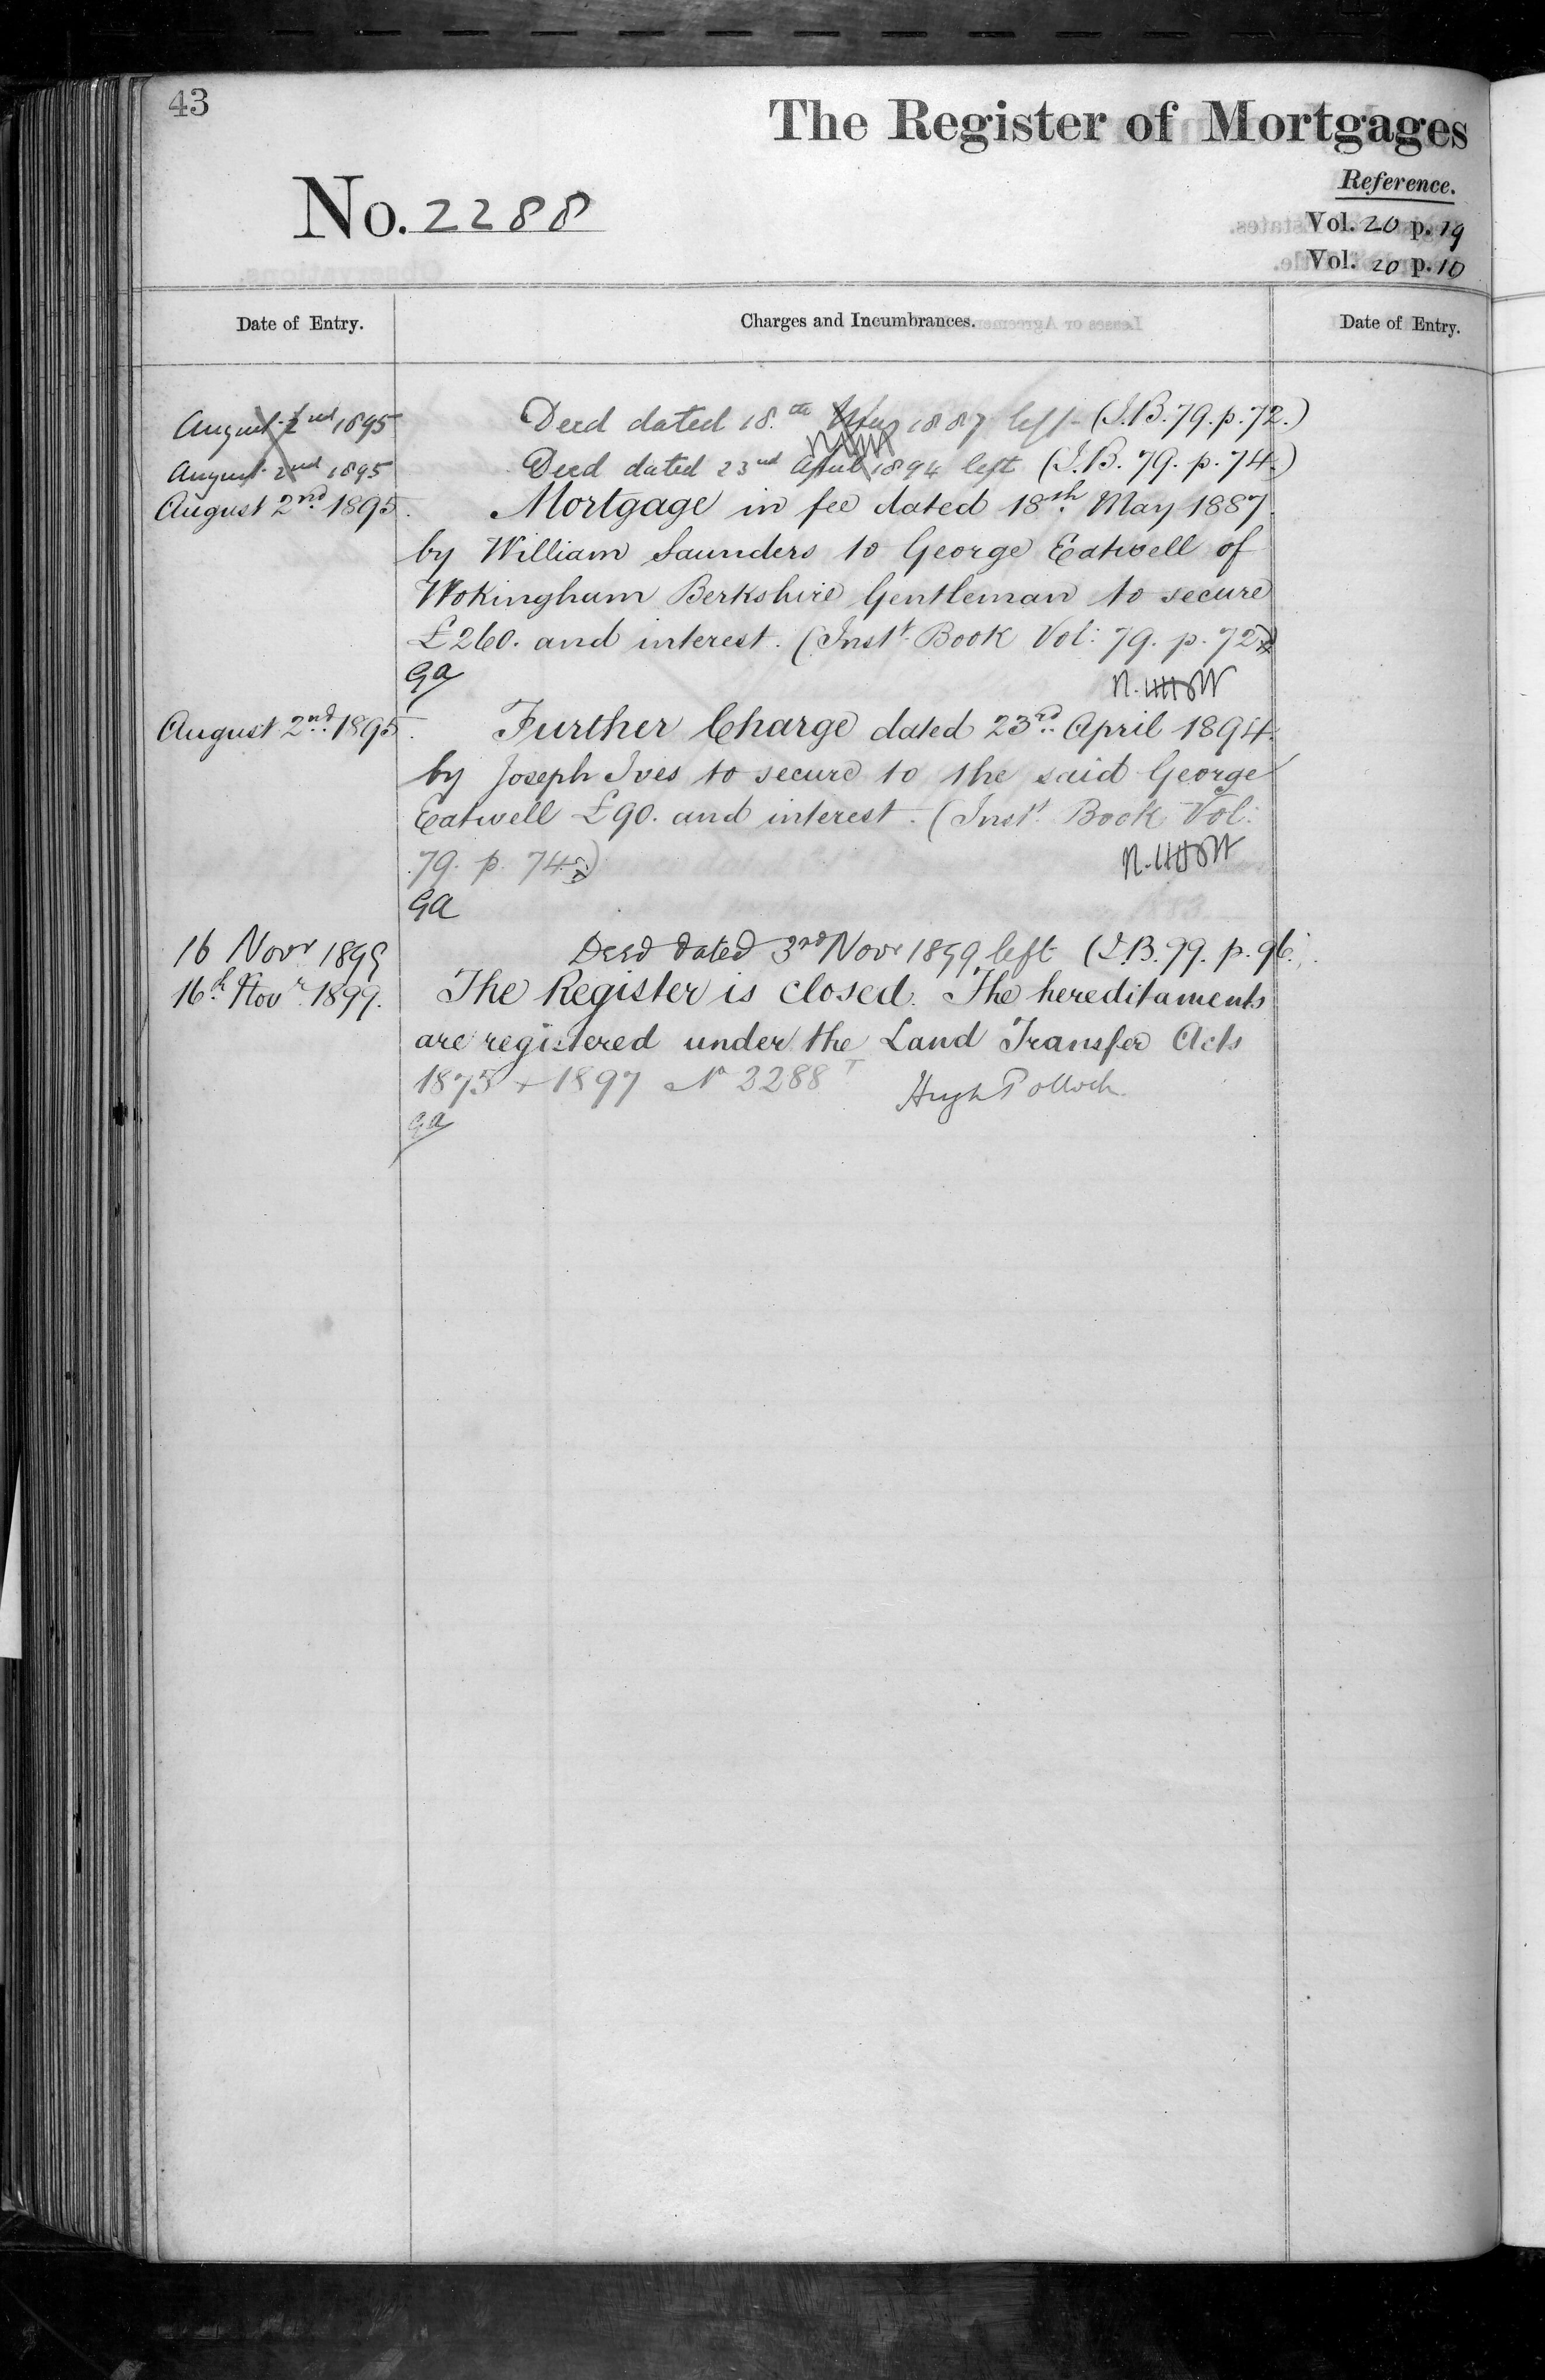 43
The Register of Mortgages
Reference.
No. 2288
Vol. 20 p. 19
Vol. 20 p. 10
Date of Entry. Charges and Incumbrances. Date of Entry.
August 2nd 1895 Deed dated 18th May 1887 left (I.B. 79. p. 72.)
August 2nd 1895 Deed dated 23rd April 1894 left (I.B. 79. p. 74.)
August 2nd 1895. Mortgage in fee dated 18th May 1887.
by William Saunders to George Eatwell of
Wokingham Berkshire Gentleman to secure
£260. and interest. (Inst. Book Vol: 79. p. 72)
GA
August 2nd 1895. Further Charge dated 23rd April 1894.
by Joseph Ives to secure to the said George
Eatwell £90. and interest. (Inst. Book Vol:
79. p. 74)
GA
16 Novr 1899 Deed dated 3rd Novr 1899 left (I.B. 99. p. 96.)
16th Novr 1899. The Register is closed. The hereditaments
are registered under the Land Transfer Acts
1875 + 1897 No 2288 T Hugh Pollock
GA